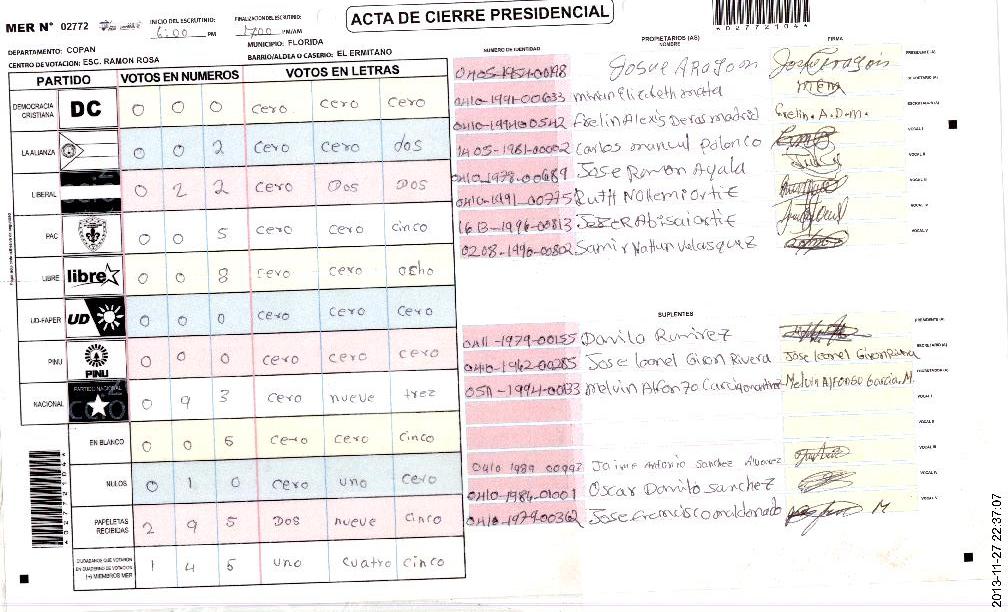 ACTA DE CIERRE PRESIDENCIAL
MER N° 02772
INICIO DEL ESCRUTINIO: 6:00 PM
FINALIZACION ESCRUTINIO: PM/AM
DEPARTAMENTO: COPAN
MUNICIPIO: FLORIDA
CENTRO DE VOTACION: ESC. RAMON ROSA
BARRIO/ALDEA O CASERIO: EL ERMITANO
PARTIDO VOTOS EN NUMEROS VOTOS EN LETRAS
DEMOCRACIA CRISTIANA DC 0 0 0 cero cero cero
LA ALIANZA 0 0 2 cero cero dos
LIBERAL 0 2 2 cero Dos Dos
PAC 0 0 5 cero cero cinco
LIBRE libre 0 0 8 cero cero ocho
UD-FAPER UD 0 0 0 cero cero cero
PINU PINU 0 0 0 cero cero cero
NACIONAL PARTIDO NACIONAL 0 9 3 cero nueve trez
EN BLANCO 0 0 5 cero cero cinco
NULOS 0 1 0 cero uno cero
PAPELETAS RECIBIDAS 2 9 5 Dos nueve cinco
CIUDADANOS QUE VOTARON EN CUADERNO DE VOTACION (+) MIEMBROS MER 1 4 5 uno cuatro cinco
NUMERO DE IDENTIDAD PROPIETARIOS (AS) NOMBRE FIRMA
0405-1951-00198 Josue Aragon PRESIDENTE (A)
0410-1991-00633 SECRETARIO (A)
Evelin Alexis Deras madrid Evelin. A. D. m. ESCRUTADOR (A)
1405-1981-00002 Carlos manuel polanco VOCAL I
0410-1978-00689 Jose Ramon Ayala VOCAL II
0410-1991-00775 Ruth Nohemi ortiz VOCAL III
1613-1996-00813 VOCAL IV
0208-1990-00802 Samir Nathun velasquez VOCAL V
SUPLENTES
0411-1979-00155 Danilo Ramirez PRESIDENTE (A)
0410-1962-00285 Jose Leonel Giron Rivera Jose Leonel Giron Rivera SECRETARIO (A)
0511-1994-00133 melvin Alfonzo Melvin Alfonso Garcia. M. ESCRUTADOR (A)
VOCAL I
VOCAL II
0410 1989 00992 Jaime Antonio Sanchez Alvarez VOCAL III
0410-1984-01001 Oscar Danilo Sanchez VOCAL IV
0410-1979-00362 Jose francisco maldonado M VOCAL V
2013-11-27 22:37:07